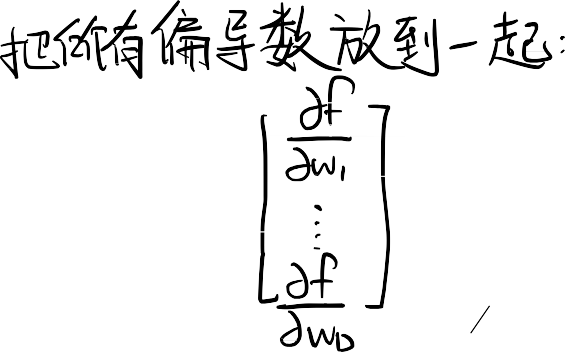 把所有偏导数放到一起:
∂f
∂w₁
⋮
∂f
∂w_D